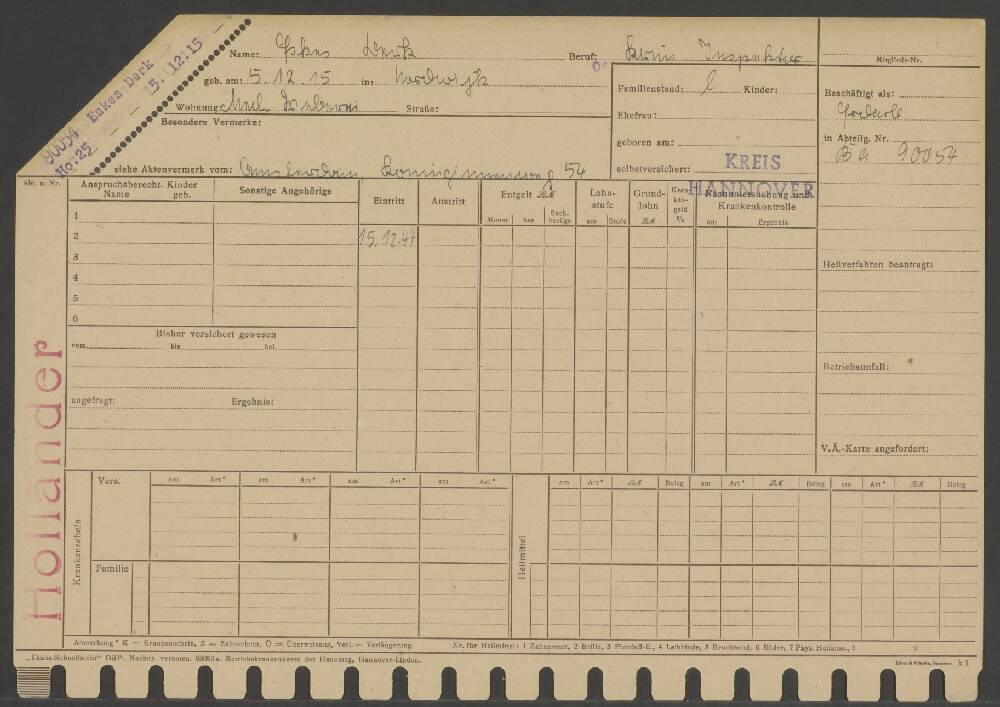 90054 Eskes Derk
Ho:25 15.12:15
Name: Eskes Derk
Beruf:
geb. am: 5.12.15 in:
Wohnung: Straße:
Besondere Vermerke:
siehe Aktenvermerk vom: 54
Familienstand: l Kinder:
Ehefrau:
geboren am:
selbstversichert:
KREIS
HANNOVER
Mitglieds-Nr.
Beschäftigt als:
in Abteilg. Nr.
90054
Heilverfahren beantragt:
Betriebsunfall:
V.Ä.-Karte angefordert:
Abt. u. Nr.
Anspruchsberecht. Kinder
Name geb.
Sonstige Angehörige
Eintritt
Austritt
Entgelt RM
Monat bar Sachbezüge
Lohnstufe
am Stufe
Grundlohn
RM
Krankengeld
%
Nachuntersuchung und
Krankenkontrolle
am Ergebnis
1
2
3
4
5
6
15.12.44
Bisher versichert gewesen
vom bis bei
angefragt: Ergebnis:
Hollander
Krankenschein
Vers. am Art* am Art* am Art* am Art*
Familie
Heilmittel
am Art* RM Beleg am Art* RM Beleg am Art* RM Beleg
Anmerkung * K = Krankenschein, Z = Zahnschein, O = Überweisung, Verl. = Verlängerung.
Nr. für Heilmittel: 1 Zahnersatz, 2 Brille, 3 Plattfuß-E., 4 Leibbinde, 5 Bruchband, 6 Bäder, 7 Phys. Heilanst., 8 9
„Ekaha-Schnellsicht“ Nachdr. verboten. Betriebskrankenkasse der Hanomag, Hannover-Linden.
k 3